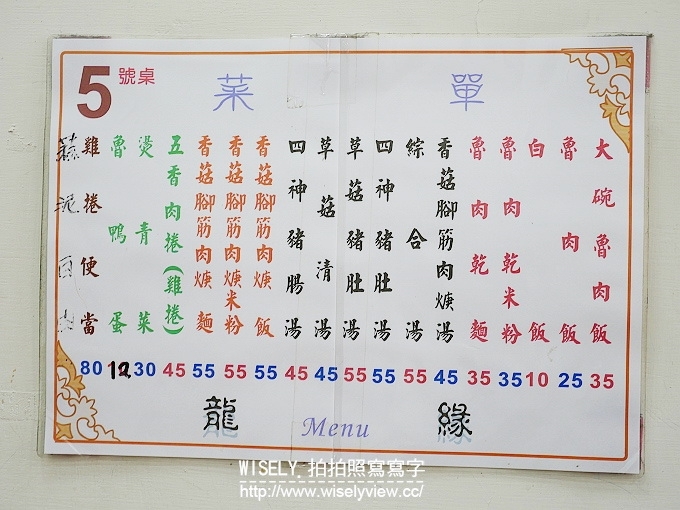 5號桌
菜單
大碗魯肉飯 35
魯肉飯 25
白飯 10
魯肉乾米粉 35
魯肉乾麵 35
香菇腳筋肉焿湯 45
綜合湯 55
四神豬肚湯 55
草菇豬肚湯 55
草菇清湯 45
四神豬腸湯 45
香菇腳筋肉焿飯 55
香菇腳筋肉焿米粉 55
香菇腳筋肉焿麵 55
五香肉捲(雞捲) 45
燙青菜 30
魯鴨蛋 12
雞捲便當 80
蒜泥白肉
龍 Menu 緣
WISELY 拍拍照寫寫字
http://www.wiselyview.cc/